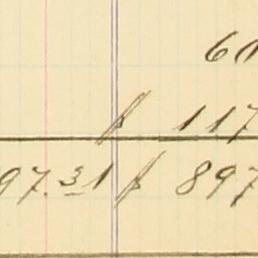 60
117
97.31 897